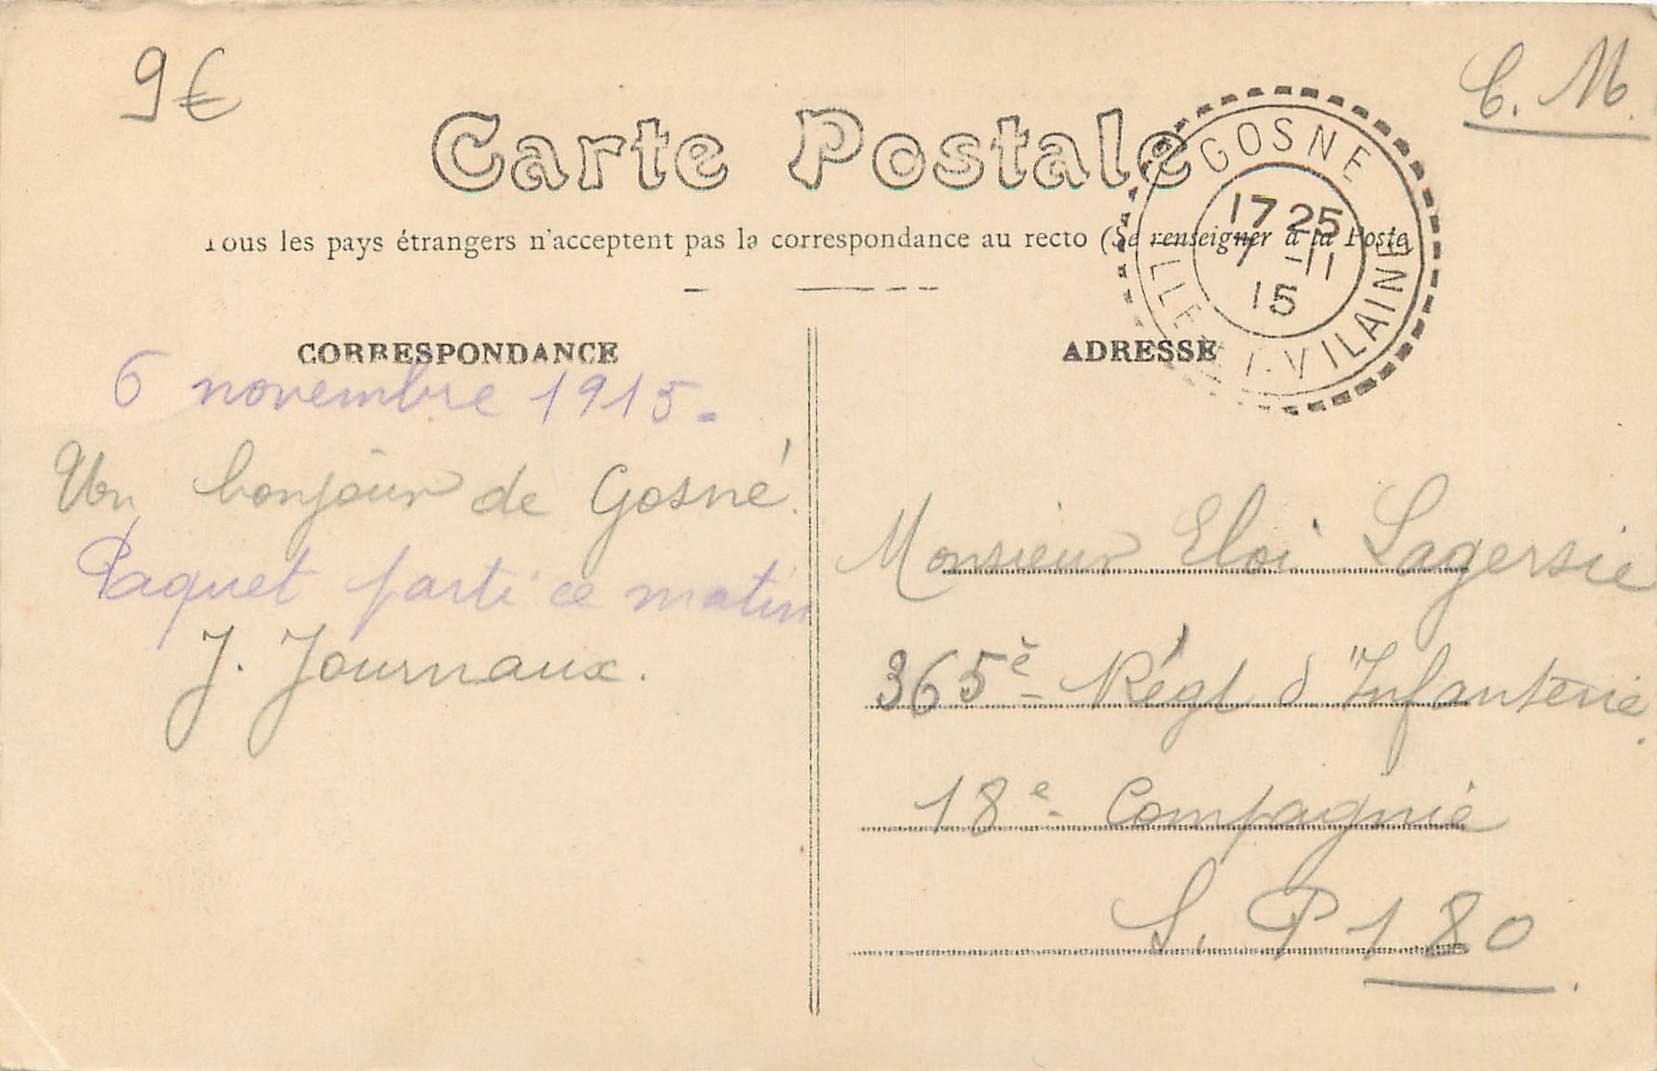 9€
C. M.
Carte Postale
Tous les pays étrangers n'acceptent pas la correspondance au recto (Se renseigner à la Poste)
GOSNE
17 25
7 -11
15
ILLE-ET-VILAINE
CORRESPONDANCE
6 novembre 1915.
Un bonjour de Gosné.
Paquet parti ce matin
J. Journaux.
ADRESSE
Monsieur Eloi Lagersie
365e Régt d'Infanterie.
18e Compagnie
S. P 180.